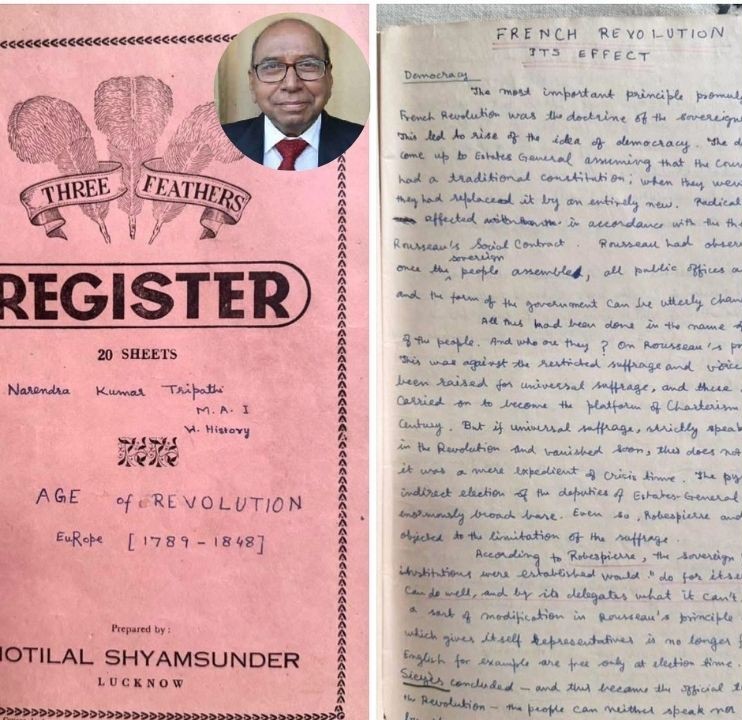 THREE FEATHERS
REGISTER
20 SHEETS
Narendra Kumar Tripathi
M.A. I
W. History
AGE of REVOLUTION
EuRope [1789-1848]
Prepared by:
MOTILAL SHYAMSUNDER
LUCKNOW
FRENCH REVOLUTION
ITS EFFECT
Democracy
The most important principle promul
French Revolution was the doctrine of the sovereign
This led to rise of the idea of democracy. The d
come up to Estates General assuming that the Coun
had a traditional constitution; when they wen
they had replaced it by an entirely new. Radical
affected in accordance with the th
Rousseau's Social Contract. Rousseau had obser
sovereign
once the people assembled, all public offices a
and the form of the government can be utterly chan
All this had been done in the name of
of the people. And who are they? On Rousseau's pr
This was against the resticted suffrage and voice
been raised for universal suffrage, and these
Carried on to become the platform of Charterism
Century. But if universal suffrage, strictly speak
in the Revolution and vanished soon, this does not
it was a mere expedient of Crisis time. The
indirect election of the deputies of Estates-General
enormously broad base. Even so, Robespierre and
objected to the limitation of the suffrage.
According to Robespierre, the sovereign
institutions were established would "do for itse
can do well, and by its delegates what it can't
a sort of modification in Rousseau's principle
which gives itself representatives is no longer f
English for example are free only at election time.
Sieyès concluded - and this became the official t
the Revolution - the people can neither speak nor